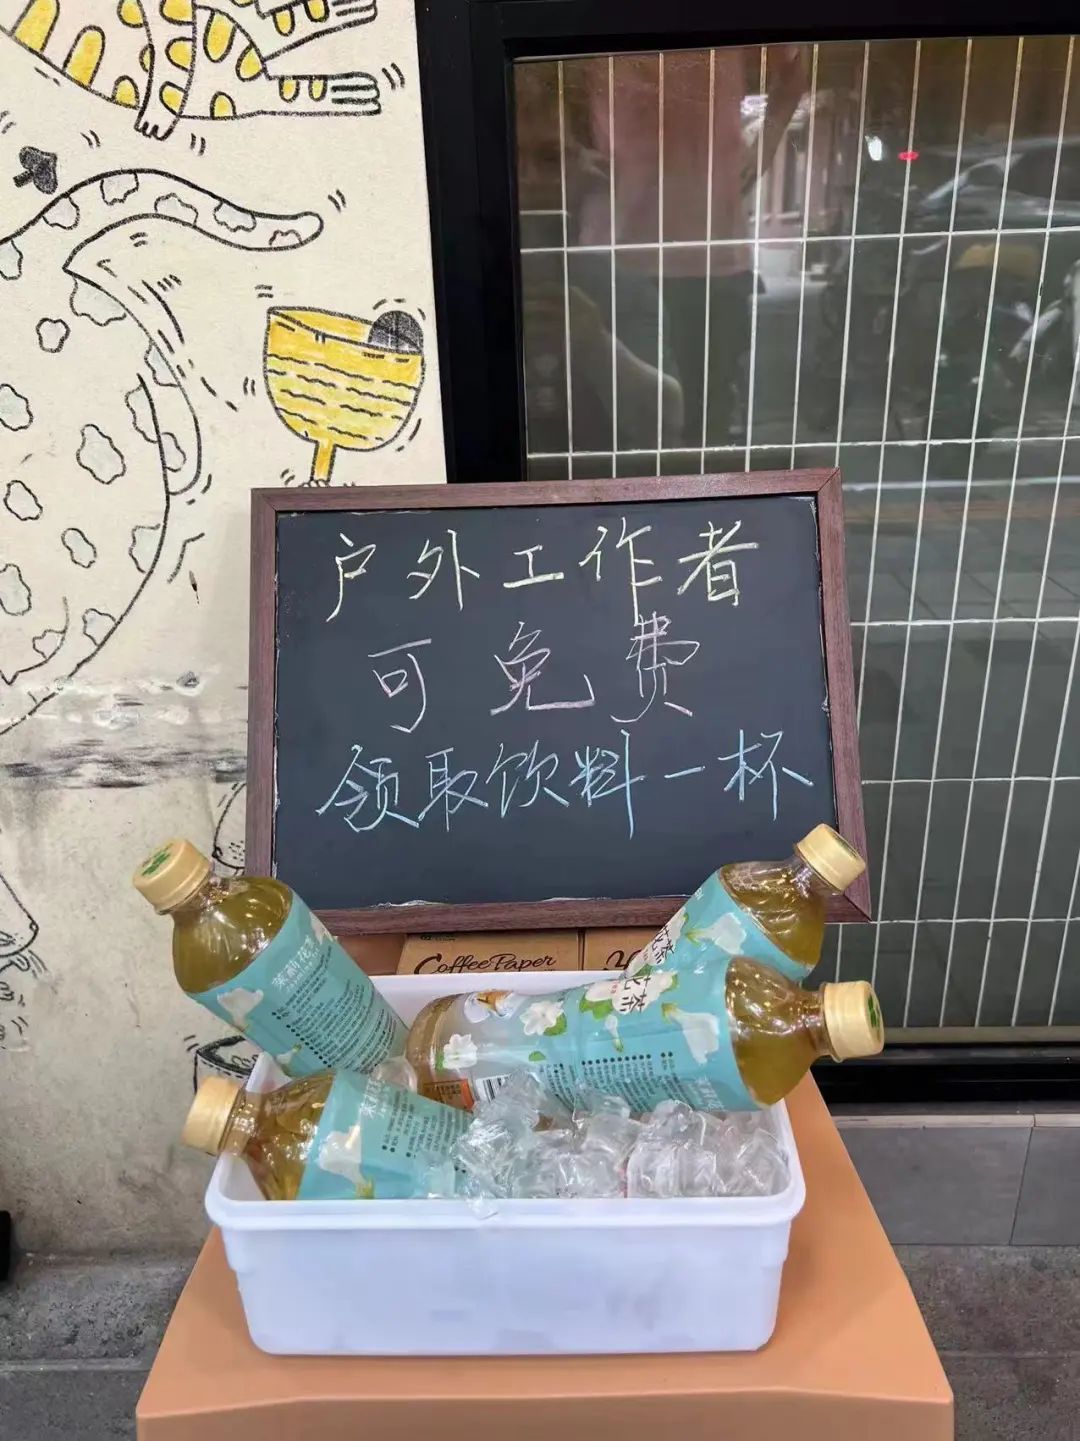 户外工作者
可免费
领取饮料一杯
Coffee Paper
茉莉花茶
花茶
花茶
茉莉